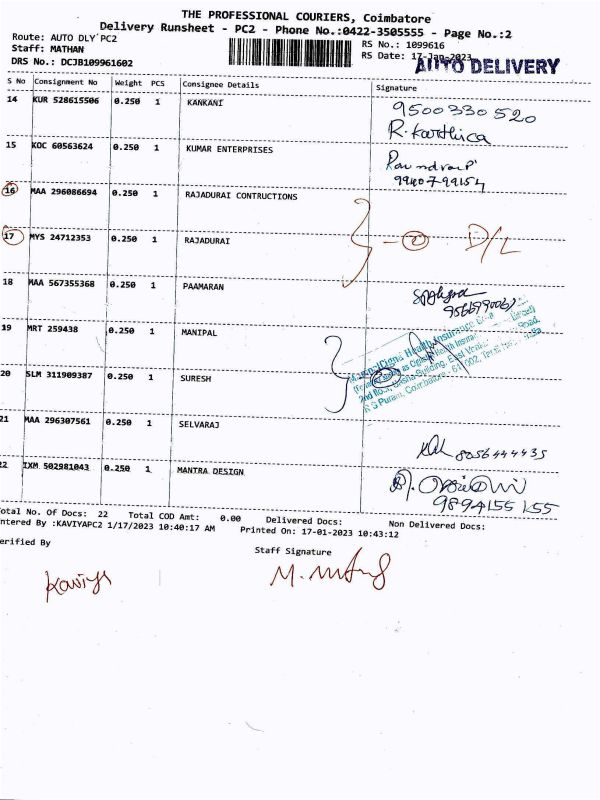 THE PROFESSIONAL COURIERS, Coimbatore
Delivery Runsheet - PC2 - Phone No.:0422-3505555 - Page No.:2
Route: AUTO DLY PC2
Staff: MATHAN
DRS No.: DCJB109961602
RS No.: 1099616
RS Date: 17-Jan-2023
AUTO DELIVERY
S No Consignment No Weight PCS Consignee Details Signature
14 KUR 528615506 0.250 1 KANKANI
9500330520
R. Karthica
15 KOC 60563624 0.250 1 KUMAR ENTERPRISES
9940799154
16 MAA 296086694 0.250 1 RAJADURAI CONTRUCTIONS
17 MYS 24712353 0.250 1 RAJADURAI
- 2 D/L
18 MAA 567355368 0.250 1 PAAMARAN
19 MRT 259438 0.250 1 MANIPAL
ManipalCigna Health Insurance
2nd floor, Building, East
R S Puram, Coimbatore - 641 002.
20 SLM 311909387 0.250 1 SURESH
21 MAA 296307561 0.250 1 SELVARAJ
8056444435
22 IXM 502981043 0.250 1 MANTRA DESIGN
9894155155
Total No. Of Docs: 22 Total COD Amt: 0.00 Delivered Docs: Non Delivered Docs:
ntered By :KAVIYAPC2 1/17/2023 10:40:17 AM Printed On: 17-01-2023 10:43:12
erified By Staff Signature
Kaviya